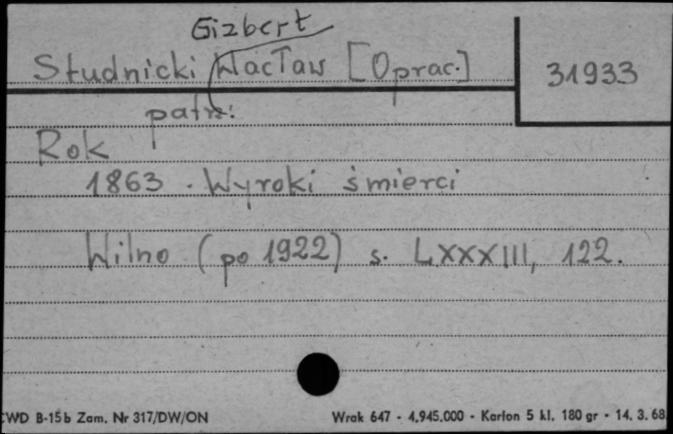 Gizbert
Studnicki Wacław [Oprac.]
31933
patrz:
Rok
1863. Wyroki śmierci
Wilno (po 1922) s. LXXXIII, 122.
CWD B-15b Zam. Nr 317/DW/ON
Wrak 647 - 4.945.000 - Karton 5 kl. 180 gr - 14. 3. 68